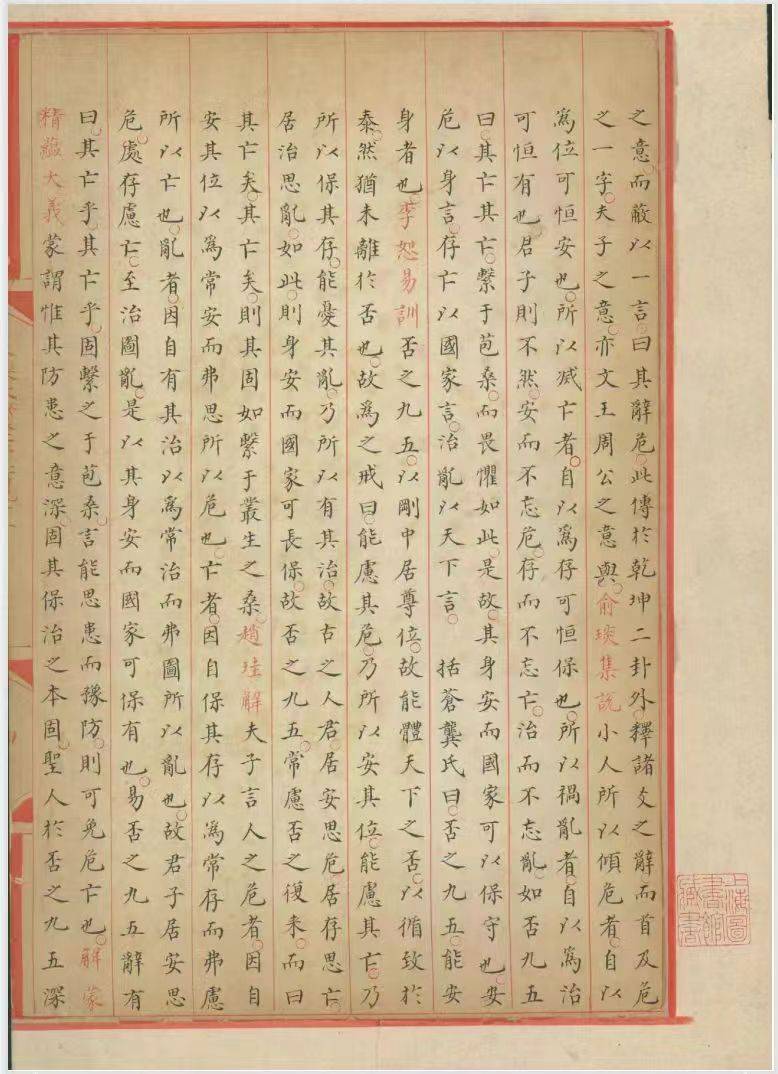 之意而蔽以一言曰其辭危此傳於乾坤二卦外釋諸爻之辭而首及危
之一字夫子之意亦文王周公之意與俞琰集説小人所以傾危者自以
爲位可恒安也所以滅亡者自以爲存可恒保也所以禍亂者自以爲治
可恒有也君子則不然安而不忘危存而不忘亡治而不忘亂如否九五
曰其亡其亡繫于苞桑而畏懼如此是故其身安而國家可以保守也安
危以身言存亡以國家言治亂以天下言 括蒼龔氏曰否之九五能安
身者也李恕易訓否之九五以剛中居尊位故能體天下之否以循致於
泰然猶未離於否也故爲之戒曰能慮其危乃所以安其位能慮其亡乃
所以保其存能憂其亂乃所以有其治故古之人君居安思危居存思亡
居治思亂如此則身安而國家可長保故否之九五常慮否之復來而曰
其亡矣其亡矣則其固如繫于叢生之桑趙珪解夫子言人之危者因自
安其位以爲常安而弗思所以危也亡者因自保其存以爲常存而弗慮
所以亡也亂者因自有其治以爲常治而弗圖所以亂也故君子居安思
危處存慮亡至治圖亂是以其身安而國家可保有也易否之九五辭有
曰其亡乎其亡乎固繫之于苞桑言能思患而豫防則可免危亡也解蒙
精蘊大義蒙謂惟其防患之意深固其保治之本固聖人於否之九五深
上海圖
書館
藏書